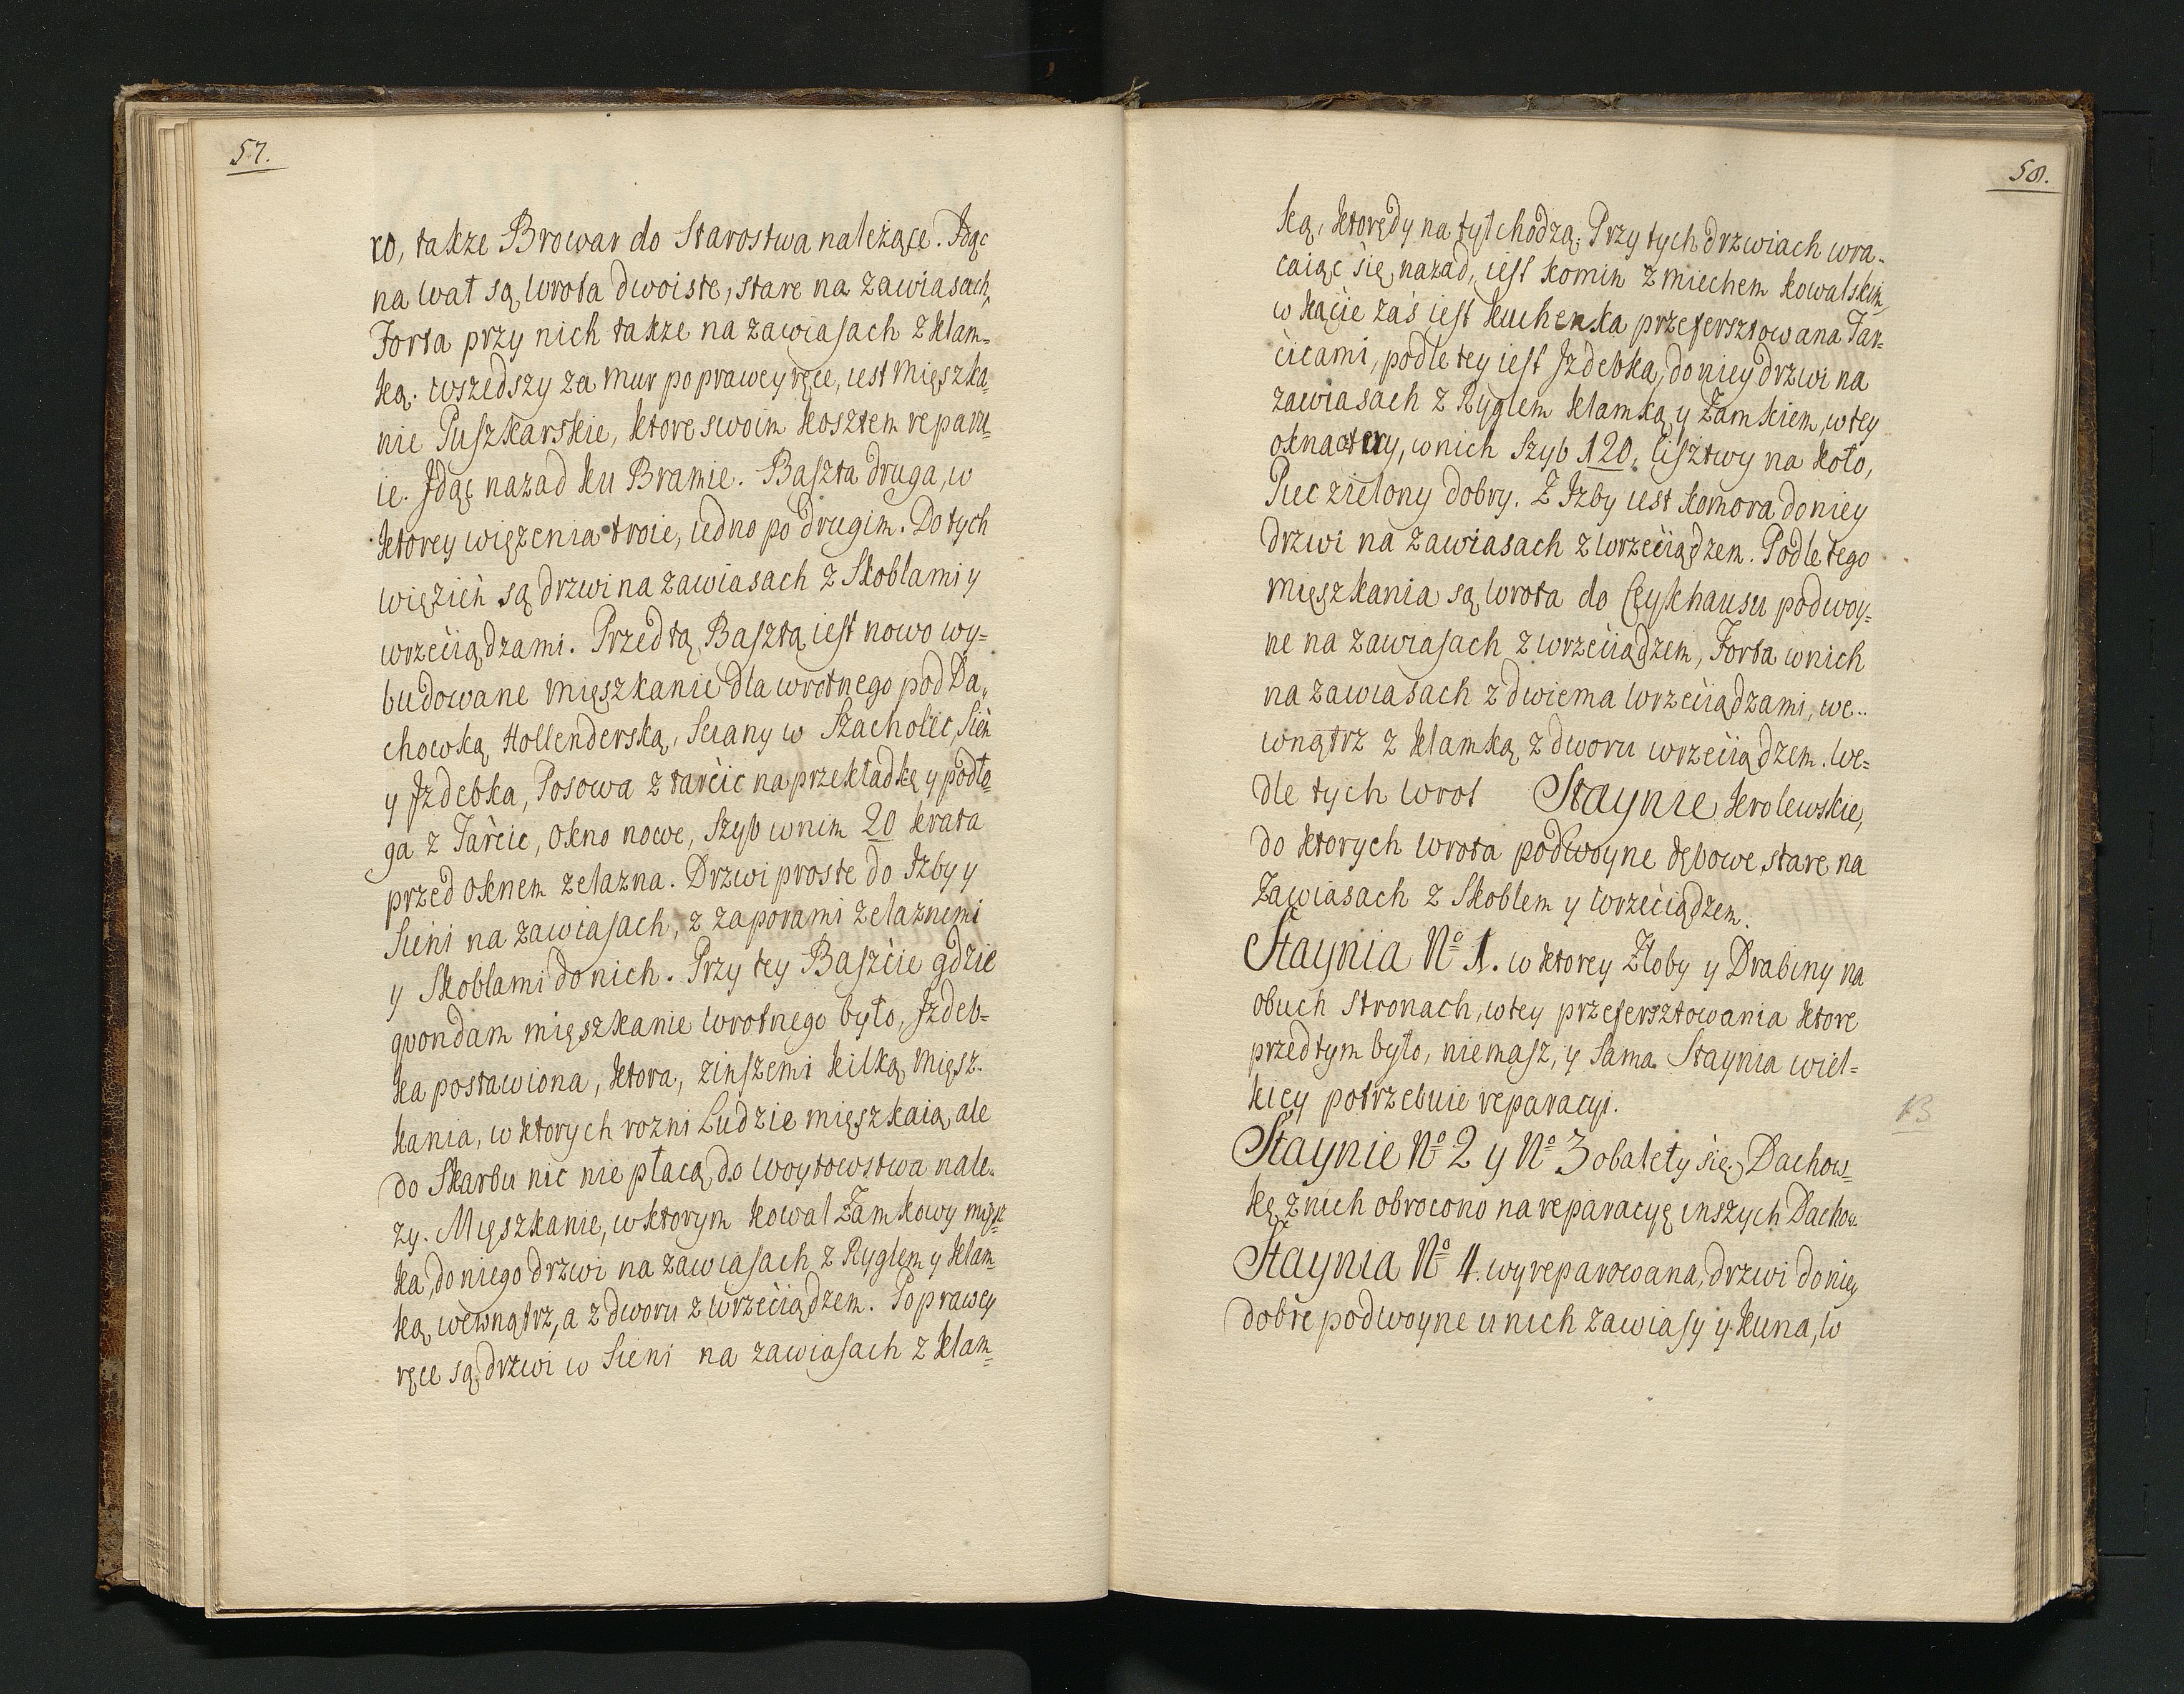 57.
ro, takze Browar do Starostwa należące. Idąc
na wał są wrota dwoiste, stare na zawiasach,
Forta przy nich takze na zawiasach z klam=
ką. wszedszy za mur po prawey ręce, iest mięszka=
nie Puszkarskie, ktore swoim kosztem reparu=
ie. Jdąc nazad ku Bramie. Baszta druga, w
ktorey więzenia troie, iedno po drugim. Do tych
więzień są drzwi na zawiasach z Skoblami y
wrzeciądzami. Przed tą Basztą iest nowo wy=
budowane mięszkanie dla wrotnego pod Da=
chowką Hollenderską, Sciany w Szacholec, Sień
y Jzdebka, Posowa z tarcic na przekładkę y podło=
ga z Tarcic, okno nowe, szyb w nim 20 krata
przed oknem zelazna. Drzwi proste do Jzby y
Sieni na zawiasach, z zaporami zelaznemi
y Skoblami do nich. Przy tey Baszcie gdzie
qvondam mięszkanie wrotnego było, Jzdeb=
ka postawiona, ktora, zinszemi kilką mięsz=
kania, w ktorych rozni Ludzie mięszkaią, ale
do Skarbu nic nie płacą, do woytowstwa nale=
zy. Mięszkanie, w ktorym kowal Zamkowy mięsz=
ka, do niego drzwi na zawiasach z Ryglem y klam=
ką wewnątrz, a z dworu z wrzeciądzem. Po prawey
ręce są drzwi w Sieni na zawiasach z klam=
58.
ką, ktorędy na tył chodzą. Przy tych drzwiach wra=
caiąc się nazad, iest komin z miechem kowalskim,
w kącie zaś iest kuchenka przefersztowana Tar=
cicami, podle tey iest Jzdebka, do niey drzwi na
zawiasach z Ryglem klamką y Zamkiem, w tey
okna cztery, w nich szyb 120, lisztwy na koło,
Piec zielony dobry. Z Jzby iest komora do niey
drzwi na zawiasach z wrzeciądzem. Podle tego
mięszkania są wrota do Ceykhausu podwoy=
ne na zawiasach z wrzeciądzem, Forta w nich
na zawiasach z dwiema wrzeciądzami, we=
wnątrz z klamką z dworu wrzeciądzem. We=
dle tych wrot Staynie krolewskie,
do ktorych wrota podwoyne dębowe stare na
Zawiasach z Skoblem y wrzeciądzem.
Staynia No 1. w ktorey Złoby y Drabiny na
obuch stronach, w tey przefersztowania ktore
przedtym było, niemasz, y sama Staynia wiel=
kiey potrzebuie reparacyi.
13
Staynie No 2 y No 3 obalety się, Dachow=
kę z nich obrocono na reparacyę inszych Dachow.
Staynia No 4. wyreparowana, drzwi do niey
dobre podwoyne u nich zawiasy y kuna, w